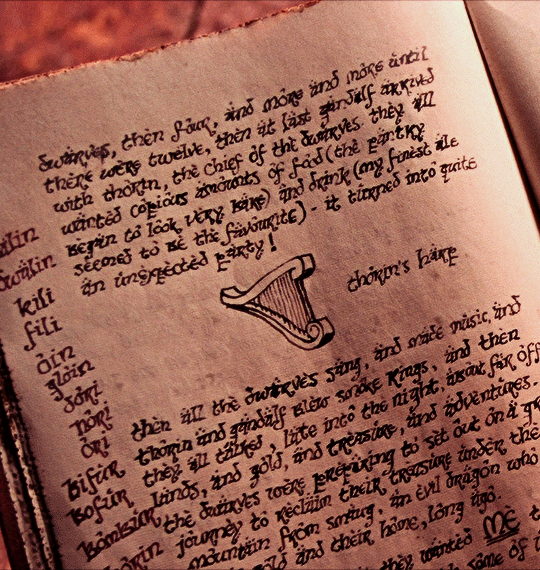 dwarves, then four, and more and more until
there were twelve, then at last gandalf arrived
with thorin, the chief of the dwarves. they all
wanted copious amounts of food (the pantry
began to look very bare) and drink (my finest ale
seemed to be the favourite) - it turned into quite
an unexpected party!
alin
dwalin
kili
fili
óin
glóin
dori
nori
ori
bifur
bofur
bombur
thorin
thorin's harp
then all the dwarves sang, and made music, and
thorin and gandalf blew smoke rings, and then
they all talked, late into the night, about far off
lands, and gold, and treasure, and adventures.
the dwarves were preparing to set out on a gr
journey to reclaim their treasure under the
mountain from smaug, an evil dragon who
gold and their home, long ago.
they wanted me t
some of